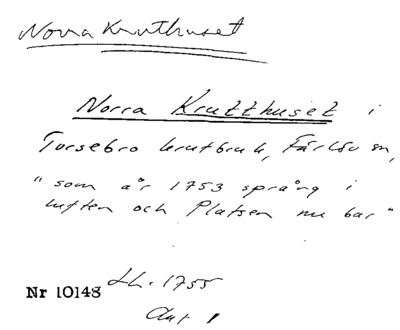 Norra Kruthuset
Norra Krutthuset i
Torsebro krutbruk, Färlöv sn,
"som år 1753 sprang i
luften och Platsen nu bar"
Lh. 1755
Nr 10148
Akt 1